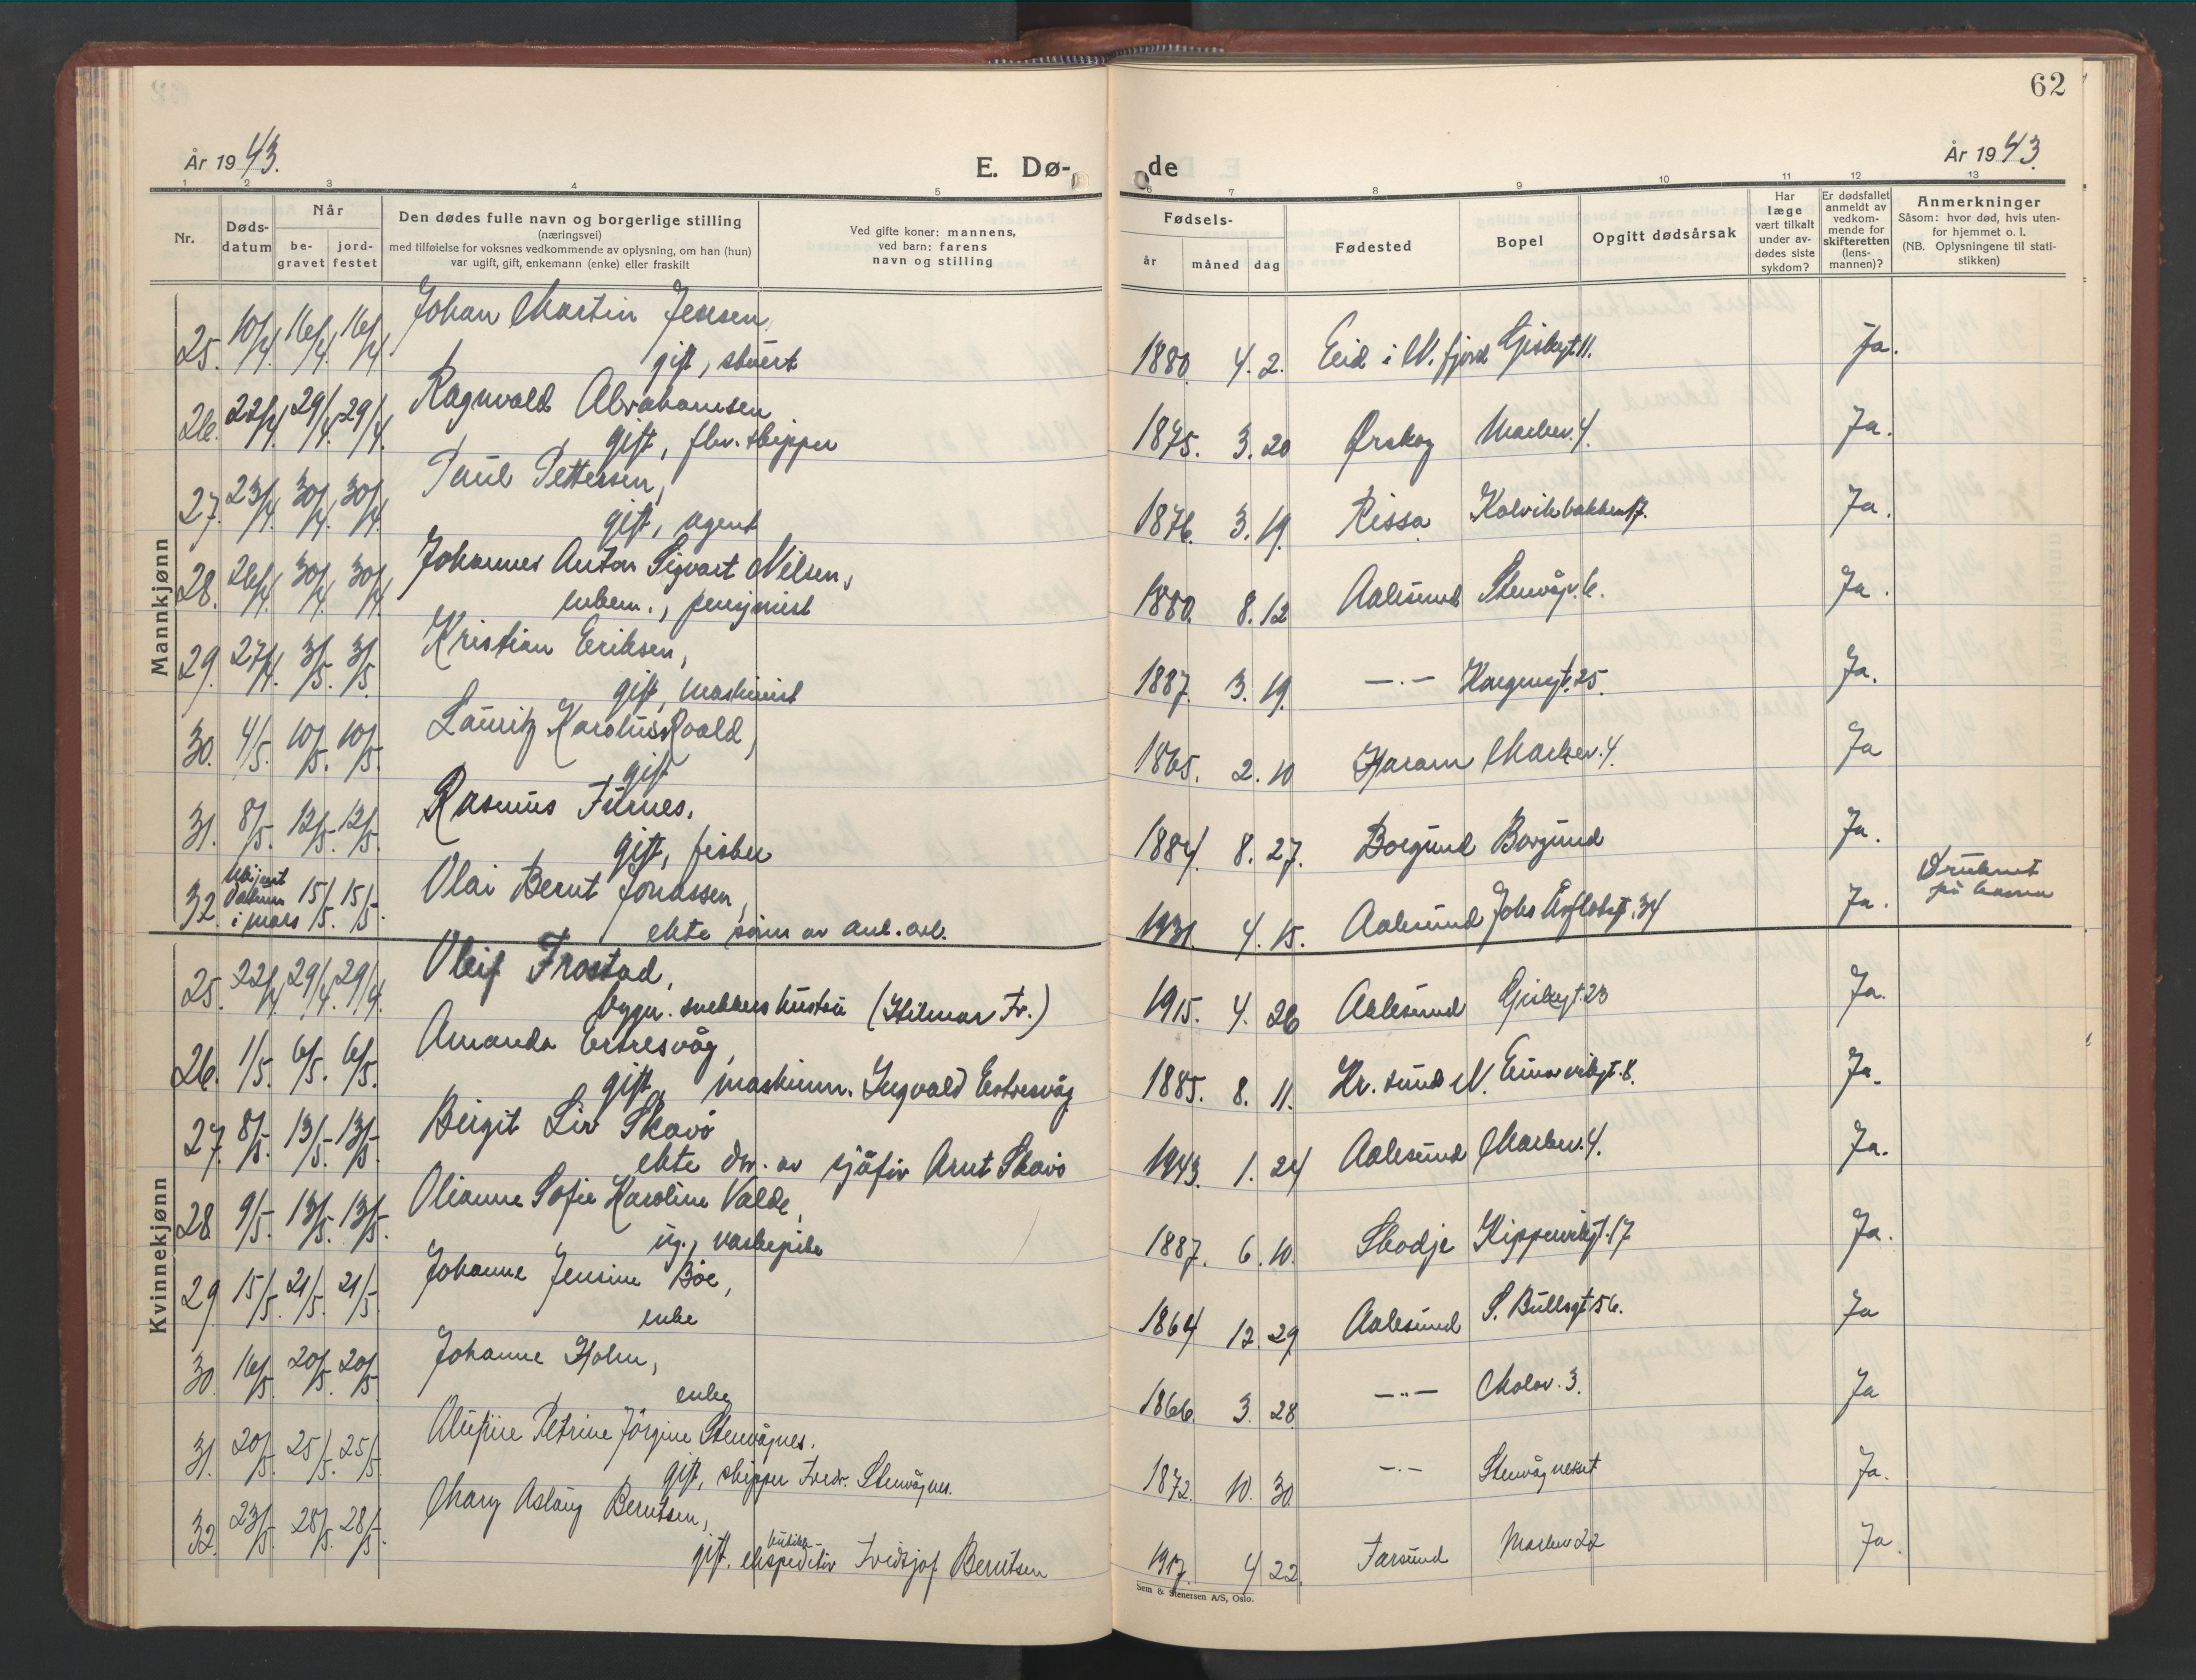 62
År 1943.
E. Dø-
de
År 1943.
1 2 3 4 5 6 7 8 9 10 11 12 13
Nr.
Døds-
datum
Når
be-
gravet
jord-
festet
Den dødes fulle navn og borgerlige stilling
(næringsvei)
med tilføielse for voksnes vedkommende av oplysning, om han (hun)
var ugift, gift, enkemann (enke) eller fraskilt
Ved gifte koner: mannens,
ved barn: farens
navn og stilling
Fødsels-
år måned dag
Fødested
Bopel
Opgitt dødsårsak
Har
læge
vært tilkalt
under av-
dødes siste
sykdom?
Er dødsfallet
anmeldt av
vedkom-
mende for
skifteretten
(lens-
mannen)?
Anmerkninger
Såsom: hvor død, hvis uten-
for hjemmet o. l.
(NB. Oplysningene til stati-
stikken)
Mannkjønn
25. 10/4. 16/4. 16/4. Johan Martin Jensen, 1880. 4. 2. Eid i N. fjord 11. Ja.
gift, stuert
26. 22/4. 29/4. 29/4. Ragnvald Abrahamsen 1875. 3. 20 Ørskog Markev. 4. Ja.
gift, fhv. skipper
27. 23/4. 30/4. 30/4. Paul Pettersen, 1876. 3. 19. Rissa Kolvikbakken 17. Ja.
gift, agent
28. 26/4. 30/4. 30/4. Johannes Anton Sigvart Nilsen, 1880. 8. 12 Aalesund Stenvågv. 6. Ja.
enkem., pensjonist
29. 27/4. 3/5. 3/5. Kristian Eriksen, 1887. 3. 19. —·— 25. Ja.
gift, maskinist
30. 4/5. 10/5. 10/5. Lauritz Karolus Roald, 1865. 2. 10 Haram Markev. 4. Ja
gift
31. 8/5. 12/5. 12/5. Rasmus Furnes. 1884 8. 27. Borgund Borgund Ja.
gift, fisker
32. Ukjent
datum
i mars 15/5. 15/5. Olai Bernt Jonassen, 1931. 4. 15. Aalesund Johs 34 Ja. Druknet
på havna
ekte sønn av anl. arb.
Kvinnekjønn
25. 22/4 29/4. 29/4. Frostad, 1915. 4. 26 Aalesund 23 Ja.
bygn. snekkers hustru (Hilmar Fr.)
26. 1/5. 6/5. 6/5. Amanda Ertresvåg, 1885. 8. 11. Kr. sund N. 8. Ja.
gift, maskinm. Ingvald Ertresvåg
27. 8/5. 13/5. 13/5. Birgit Liv Skavø 1943. 1. 24 Aalesund Markev. 4. Ja.
ekte dtr. av sjåfør Arnt Skavø
28. 9/5. 13/5. 13/5. Olianne Sofie Karoline Valde, 1887. 6. 10. Skodje Kippervikgt. 17 Ja.
ug., vaskepike
29. 15/5. 21/5. 21/5. Johanne Jensine Bøe, 1864 12. 29. Aalesund S. Bullsgt 56. Ja
enke
30. 16/5. 20/5. 20/5. Johanne Holm, 1866. 3. 28. —··— Molov. 3. Ja
enke
31. 20/5. 25/5. 25/5. Petrine Jørgine Stenvågnes. 1872. 10. 30. —·— Stenvågneset Ja.
gift, skipper Fredr. Stenvågnes.
32. 23/5. 28/5. 28/5. Mary Aslaug Berntsen, 1917. 4 22. Farsund Markev 22 Ja.
gift. butikk-
ekspeditør Fridtjof Berntsen
Sem & Stenersen A/S, Oslo.